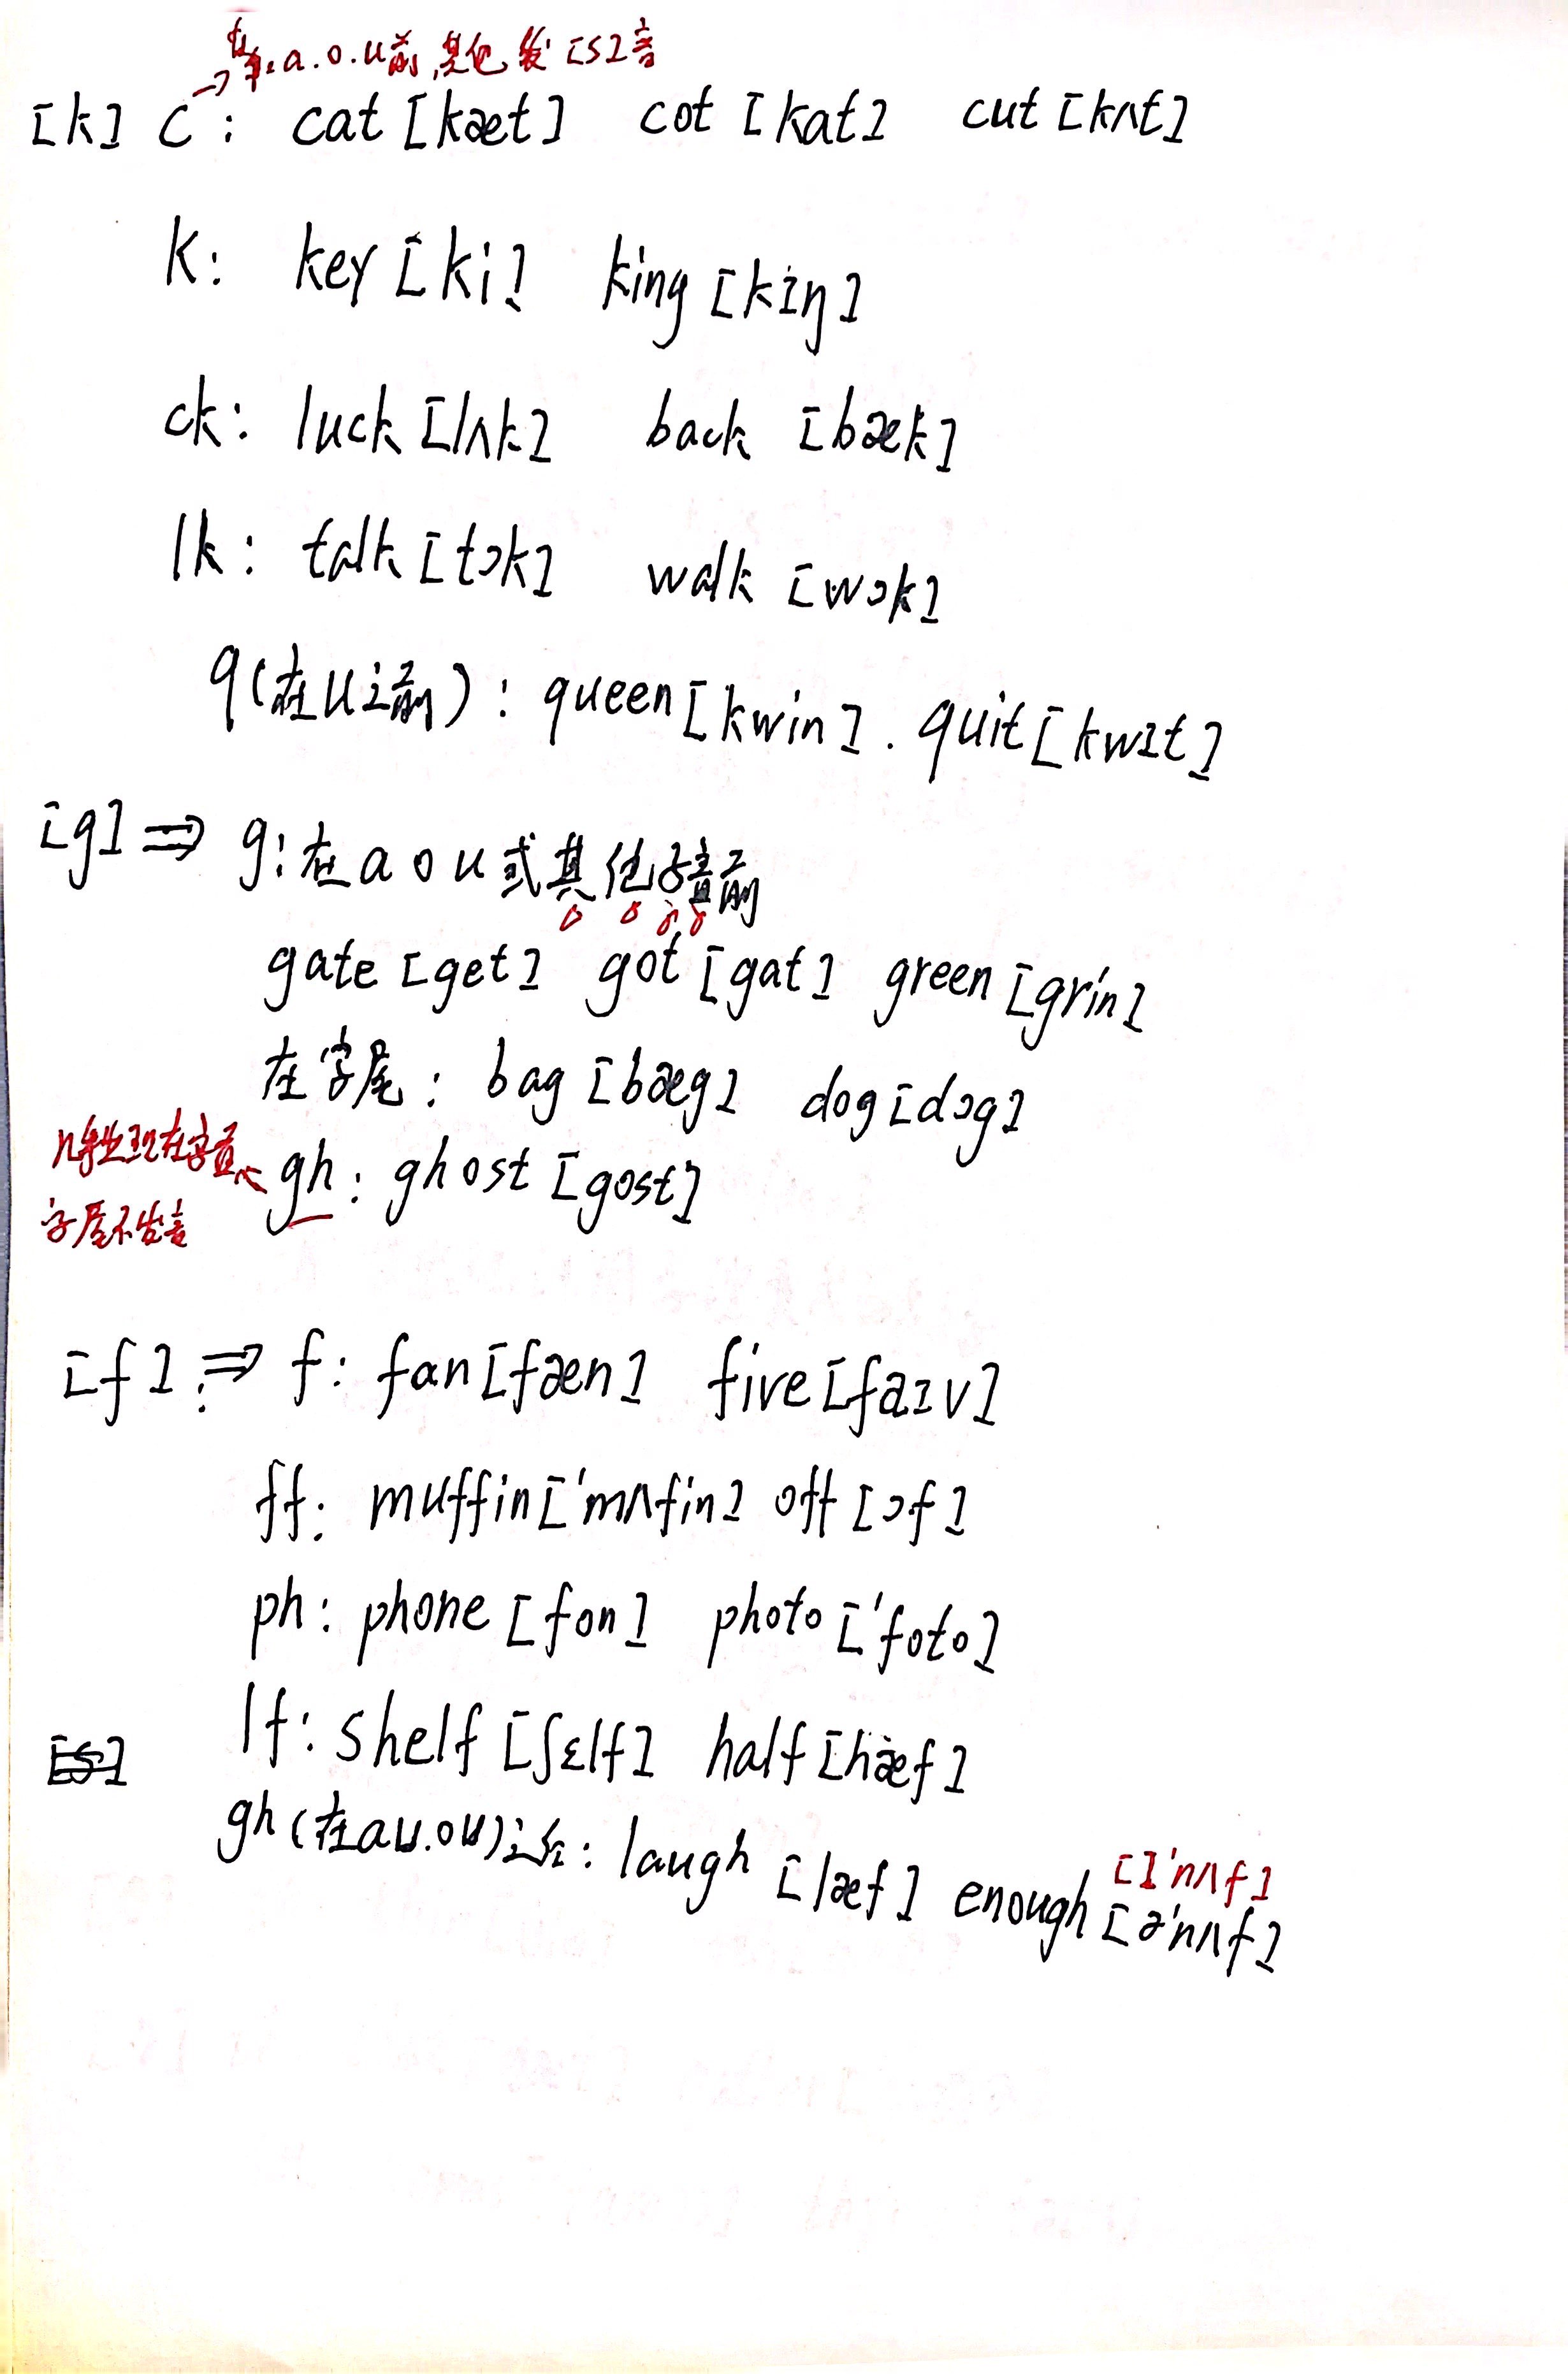 在 a.o.u前,其他发[s]音
[k] c: cat [kæt] cot [kat] cut [kʌt]
k: key [ki] king [kɪŋ]
ck: luck [lʌk] back [bæk]
lk: talk [tɔk] walk [wɔk]
q(在u之前): queen [kwin]. quit [kwɪt]
[g] ⇒ g: 在 a o u 或其他子音前
gate [get] got [gat] green [grin]
在字尾: bag [bæg] dog [dɔg]
出现在字首
gh: ghost [gost]
字尾不发音
[f] ⇒ f: fan [fæn] five [faɪv]
ff: muffin ['mʌfin] off [ɔf]
ph: phone [fon] photo ['foto]
lf: shelf [ʃɛlf] half [hæf]
[s]
gh(在au.ou)之后: laugh [læf] enough [ə'nʌf]
[ɪ'nʌf]